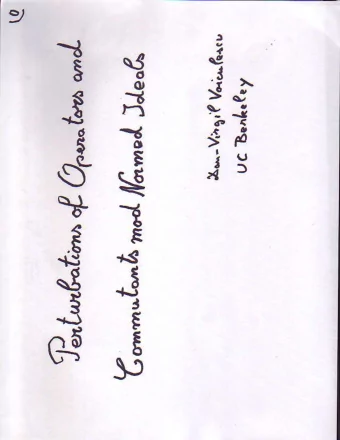 Perturbations of Operators and
Commutants mod Normed Ideals
Dan-Virgil Voiculescu
UC Berkeley